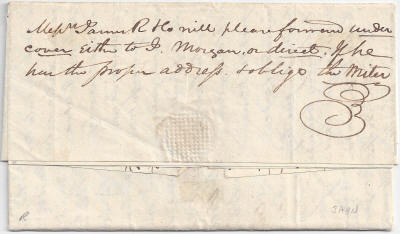 Messrs James R & Co will please forward under
cover either to J. Morgan, or direct, If he
has the proper address. & oblige the Writer
R